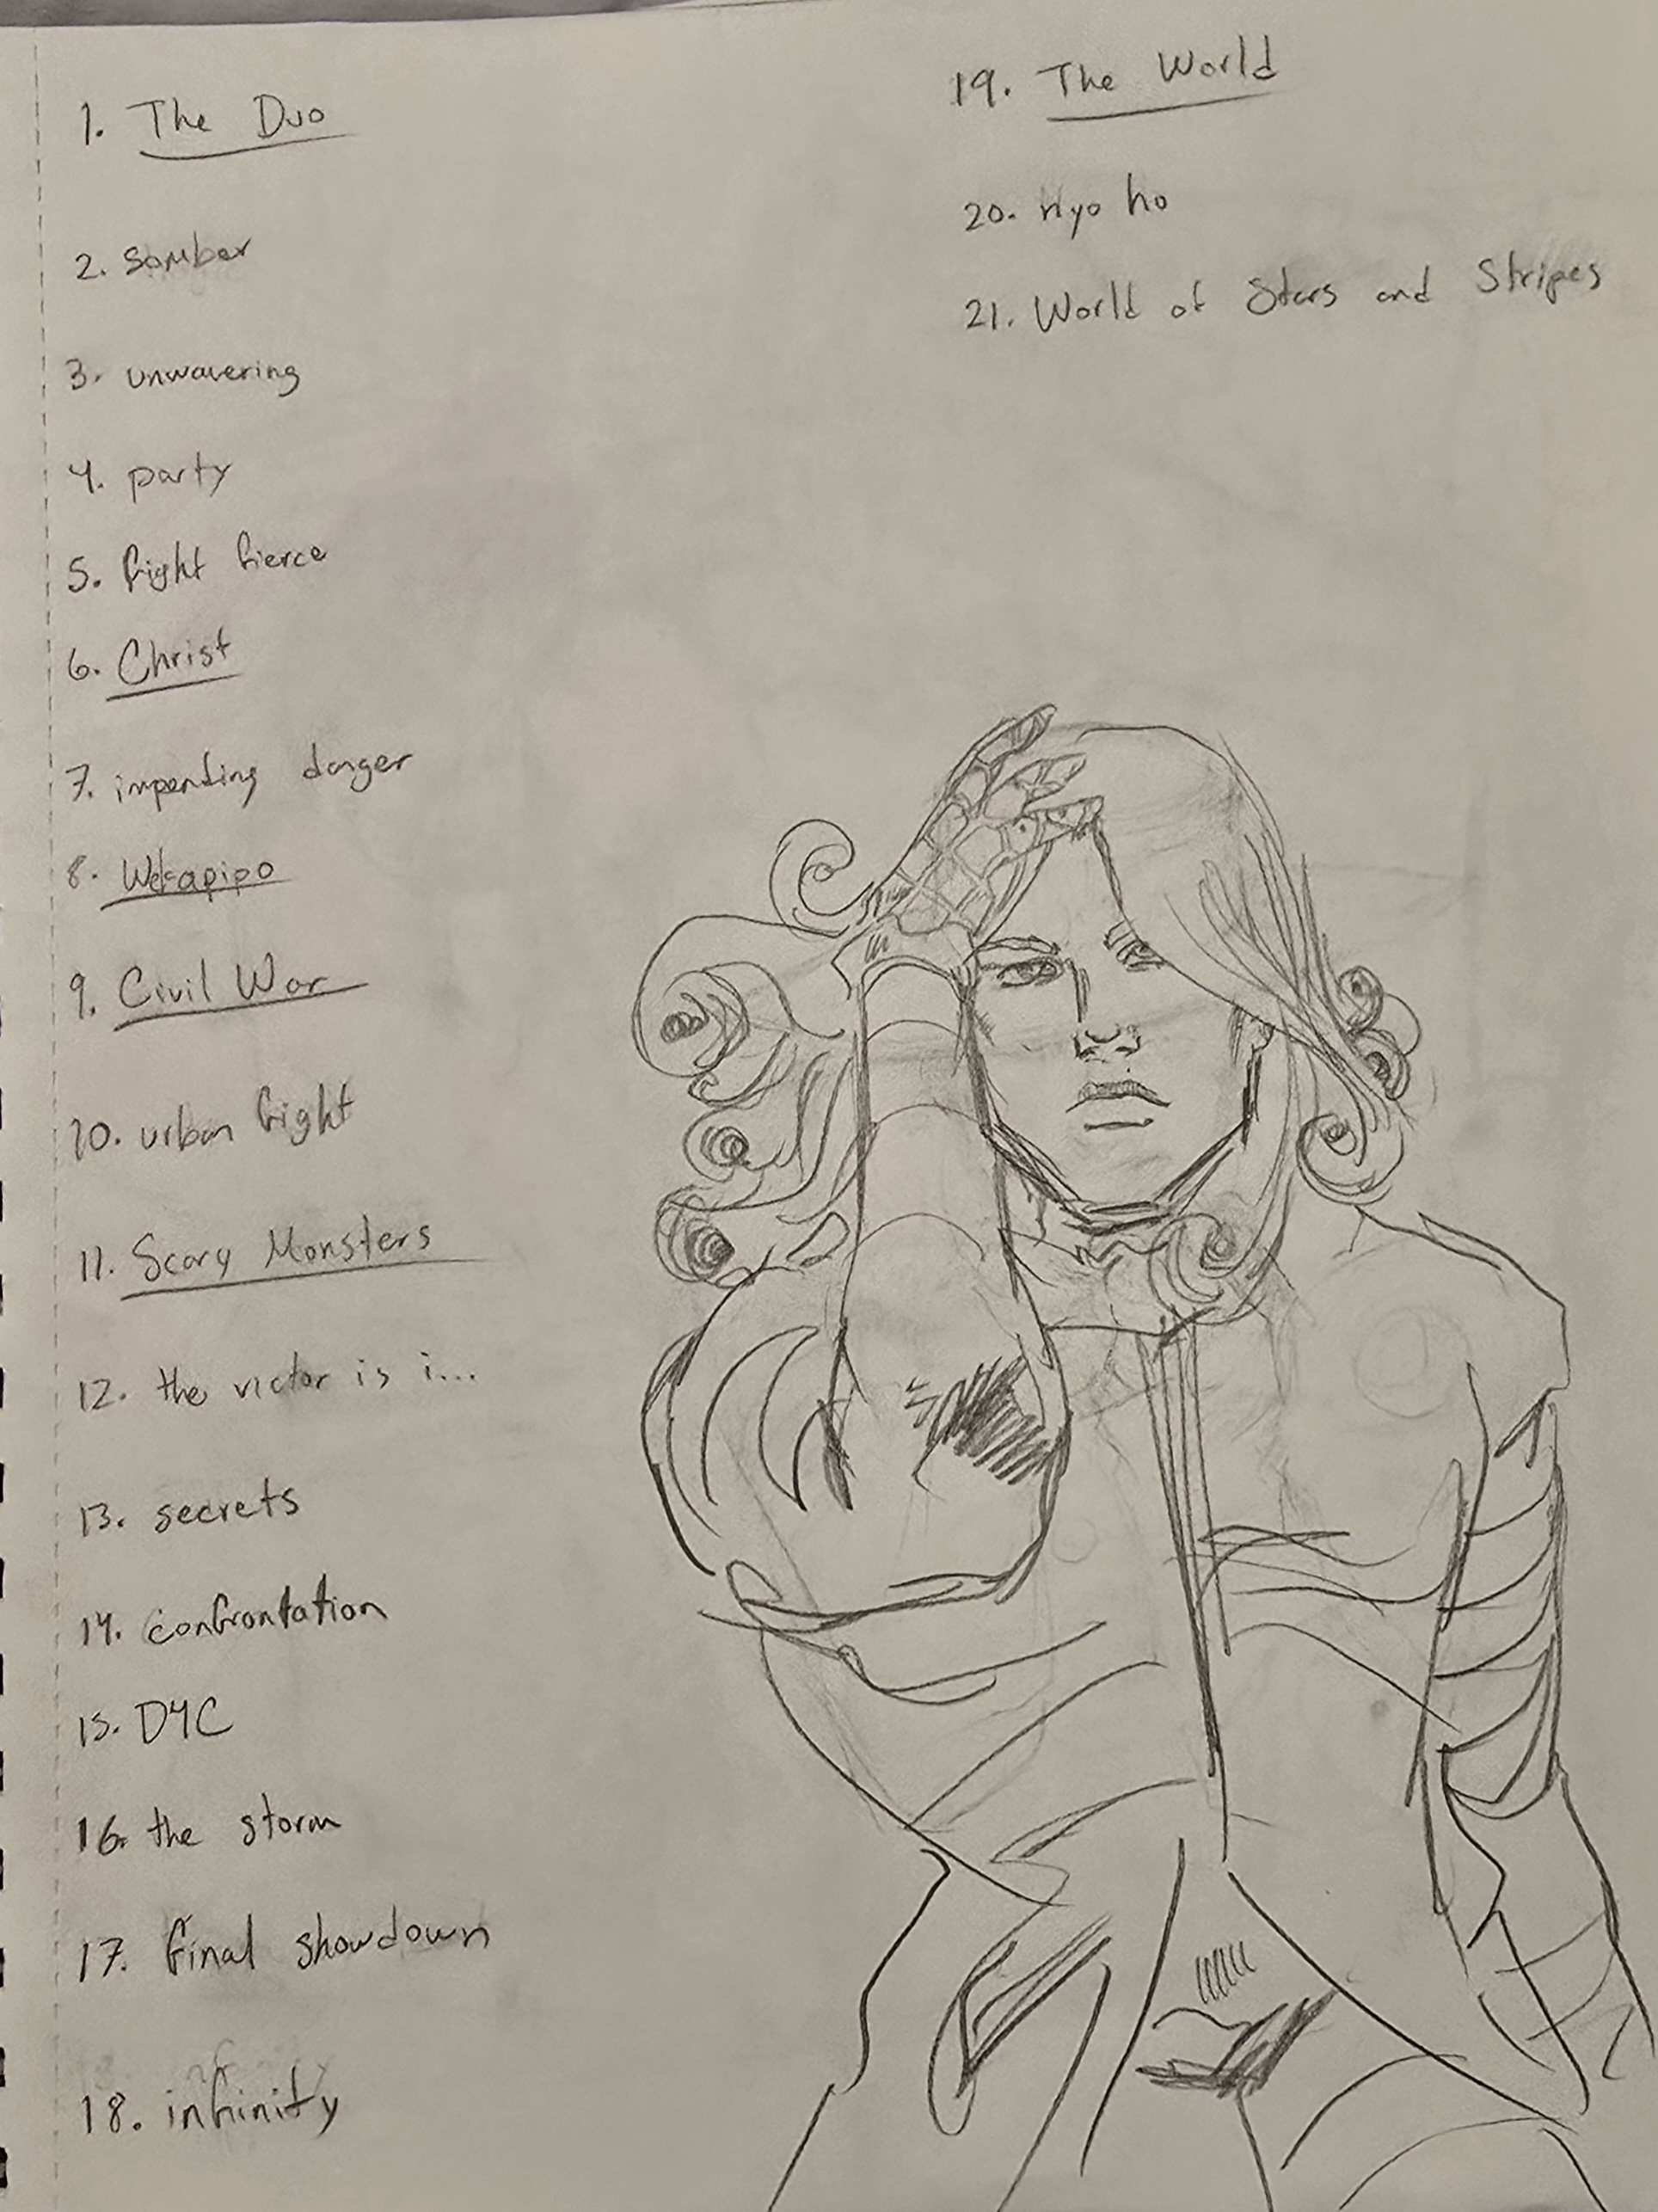 1. The Duo
2. somber
3. unwavering
4. party
5. fight fierce
6. Christ
7. impending danger
8. Wekapipo
9. Civil War
10. urban fight
11. Scary Monsters
12. the victor is i...
13. secrets
14. confrontation
15. D4C
16. the storm
17. final showdown
18. infinity
19. The World
20. Nyo ho
21. World of Stars and Stripes